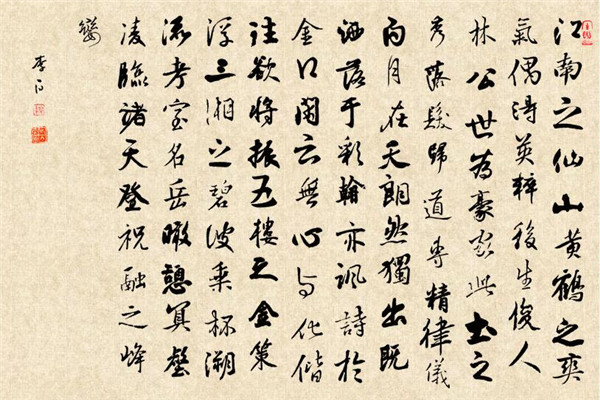 江南之仙山黃鶴之爽
氣偶得英粹後生俊人
林公世為豪家此土之
秀落髮歸道專精律儀
白月在天朗然獨出既
洒落于彩翰亦諷詩於
金口閑云無心与化偕
往欲將振五樓之金策
浮三湘之碧波乘杯溯
流考室名岳瞰憩冥壑
凌臨諸天登祝融之峰
巒
李白